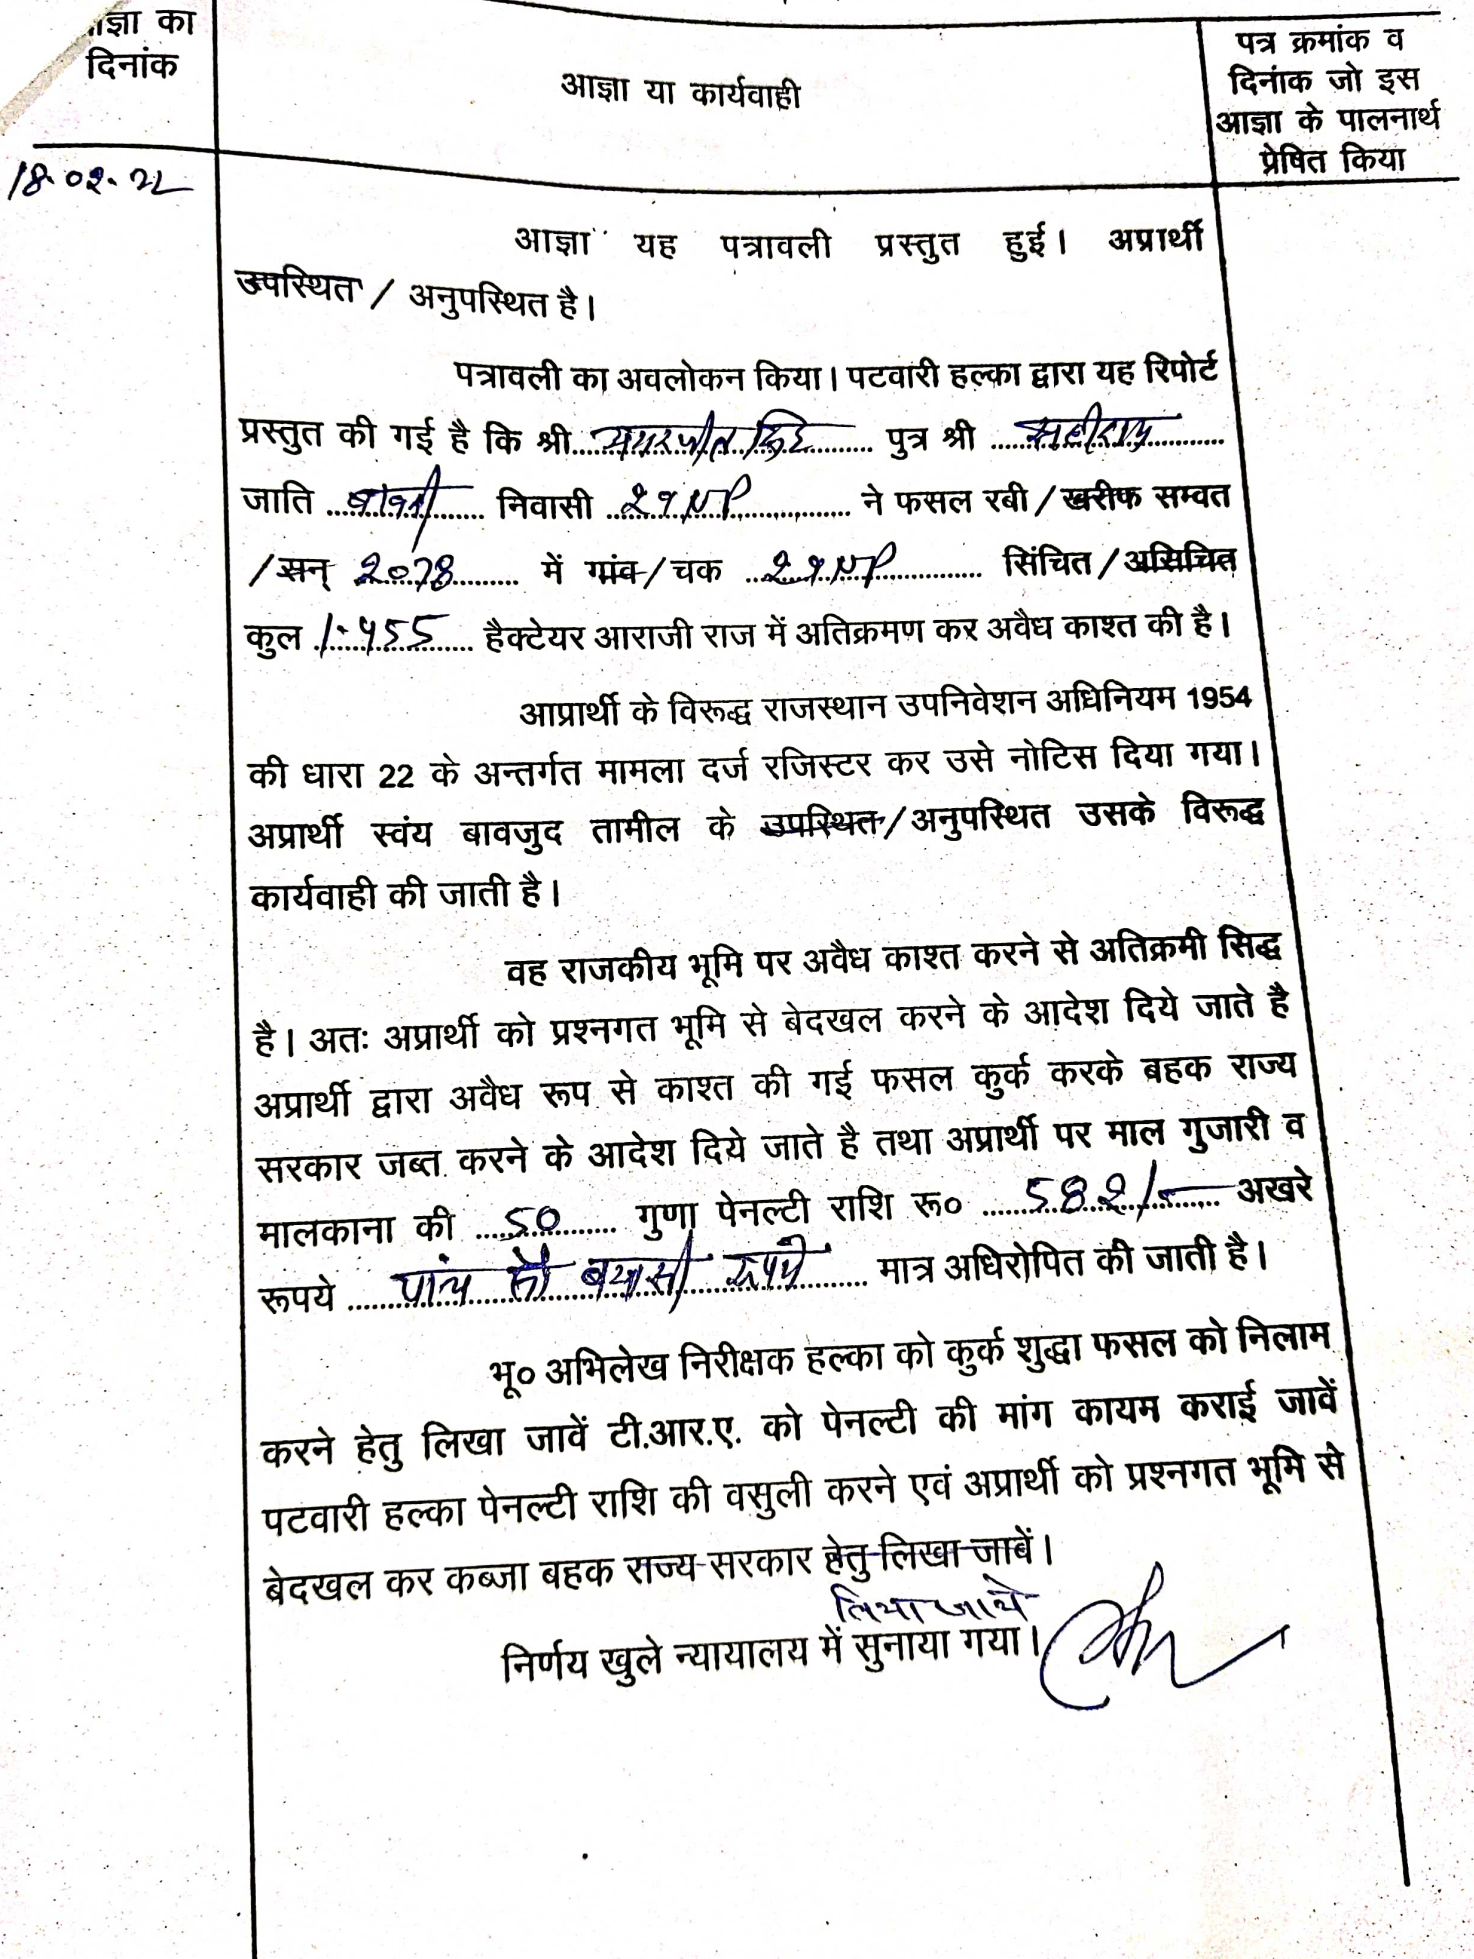 आज्ञा का
दिनांक
आज्ञा या कार्यवाही
पत्र क्रमांक व
दिनांक जो इस
आज्ञा के पालनार्थ
प्रेषित किया
18.02.22
आज्ञा यह पत्रावली प्रस्तुत हुई। अप्रार्थी
उपस्थित / अनुपस्थित है।
पत्रावली का अवलोकन किया। पटवारी हल्का द्वारा यह रिपोर्ट
प्रस्तुत की गई है कि श्री पुत्र श्री
जाति निवासी 29 NP ने फसल रबी / खरीफ सम्वत
/ सन् 2078 में गांव / चक 29 NP सिंचित / असिचित
कुल 1.455 हैक्टेयर आराजी राज में अतिक्रमण कर अवैध काश्त की है।
आप्रार्थी के विरूद्ध राजस्थान उपनिवेशन अधिनियम 1954
की धारा 22 के अन्तर्गत मामला दर्ज रजिस्टर कर उसे नोटिस दिया गया।
अप्रार्थी स्वंय बावजुद तामील के उपस्थित / अनुपस्थित उसके विरूद्ध
कार्यवाही की जाती है।
वह राजकीय भूमि पर अवैध काश्त करने से अतिक्रमी सिद्ध
है। अतः अप्रार्थी को प्रश्नगत भूमि से बेदखल करने के आदेश दिये जाते है
अप्रार्थी द्वारा अवैध रूप से काश्त की गई फसल कुर्क करके बहक राज्य
सरकार जब्त करने के आदेश दिये जाते है तथा अप्रार्थी पर माल गुजारी व
मालकाना की 50 गुणा पेनल्टी राशि रू० 582/- अखरे
रूपये पांच सौ बयासी रूपये मात्र अधिरोपित की जाती है।
भू० अभिलेख निरीक्षक हल्का को कुर्क शुद्धा फसल को निलाम
करने हेतु लिखा जावें टी.आर.ए. को पेनल्टी की मांग कायम कराई जावें
पटवारी हल्का पेनल्टी राशि की वसुली करने एवं अप्रार्थी को प्रश्नगत भूमि से
बेदखल कर कब्जा बहक राज्य सरकार हेतु लिखा जावें।
लिया जावे
निर्णय खुले न्यायालय में सुनाया गया।